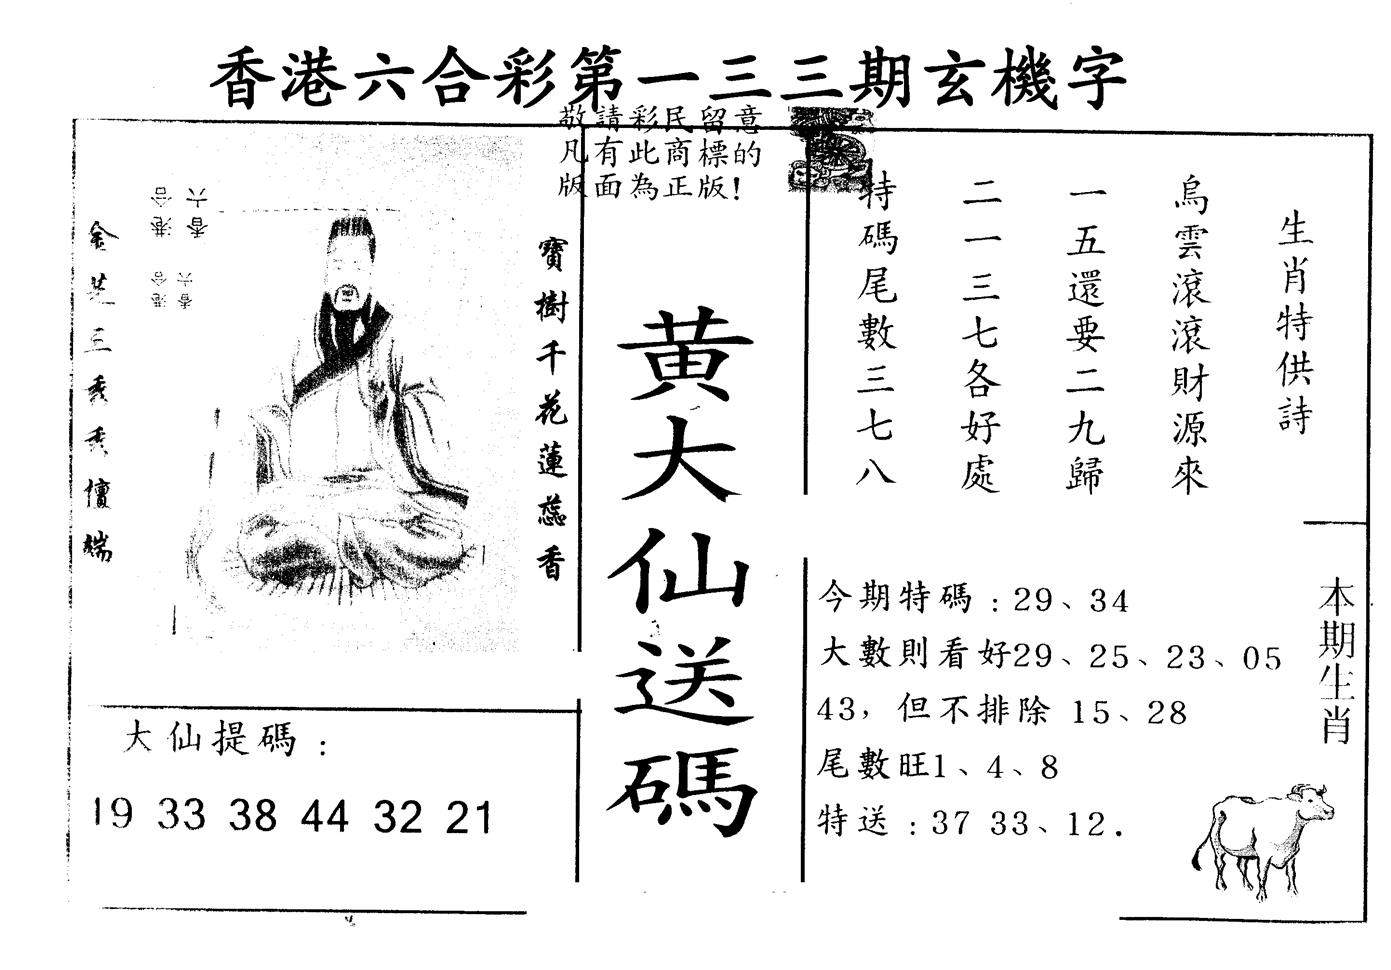 香港六合彩第一三三期玄機字
敬請彩民留意
凡有此商標的
版面為正版!
生肖特供詩
烏雲滾滾財源來
一五還要二九歸
二一三七各好處
特碼尾數三七八
寶樹千花蓮蕊香
六合
香港
六合
香港
黃大仙送碼
今期特碼:29、34
大數則看好29、25、23、05
43,但不排除 15、28
尾數旺1、4、8
特送:37 33、12.
本期生肖
大仙提碼:
19 33 38 44 32 21